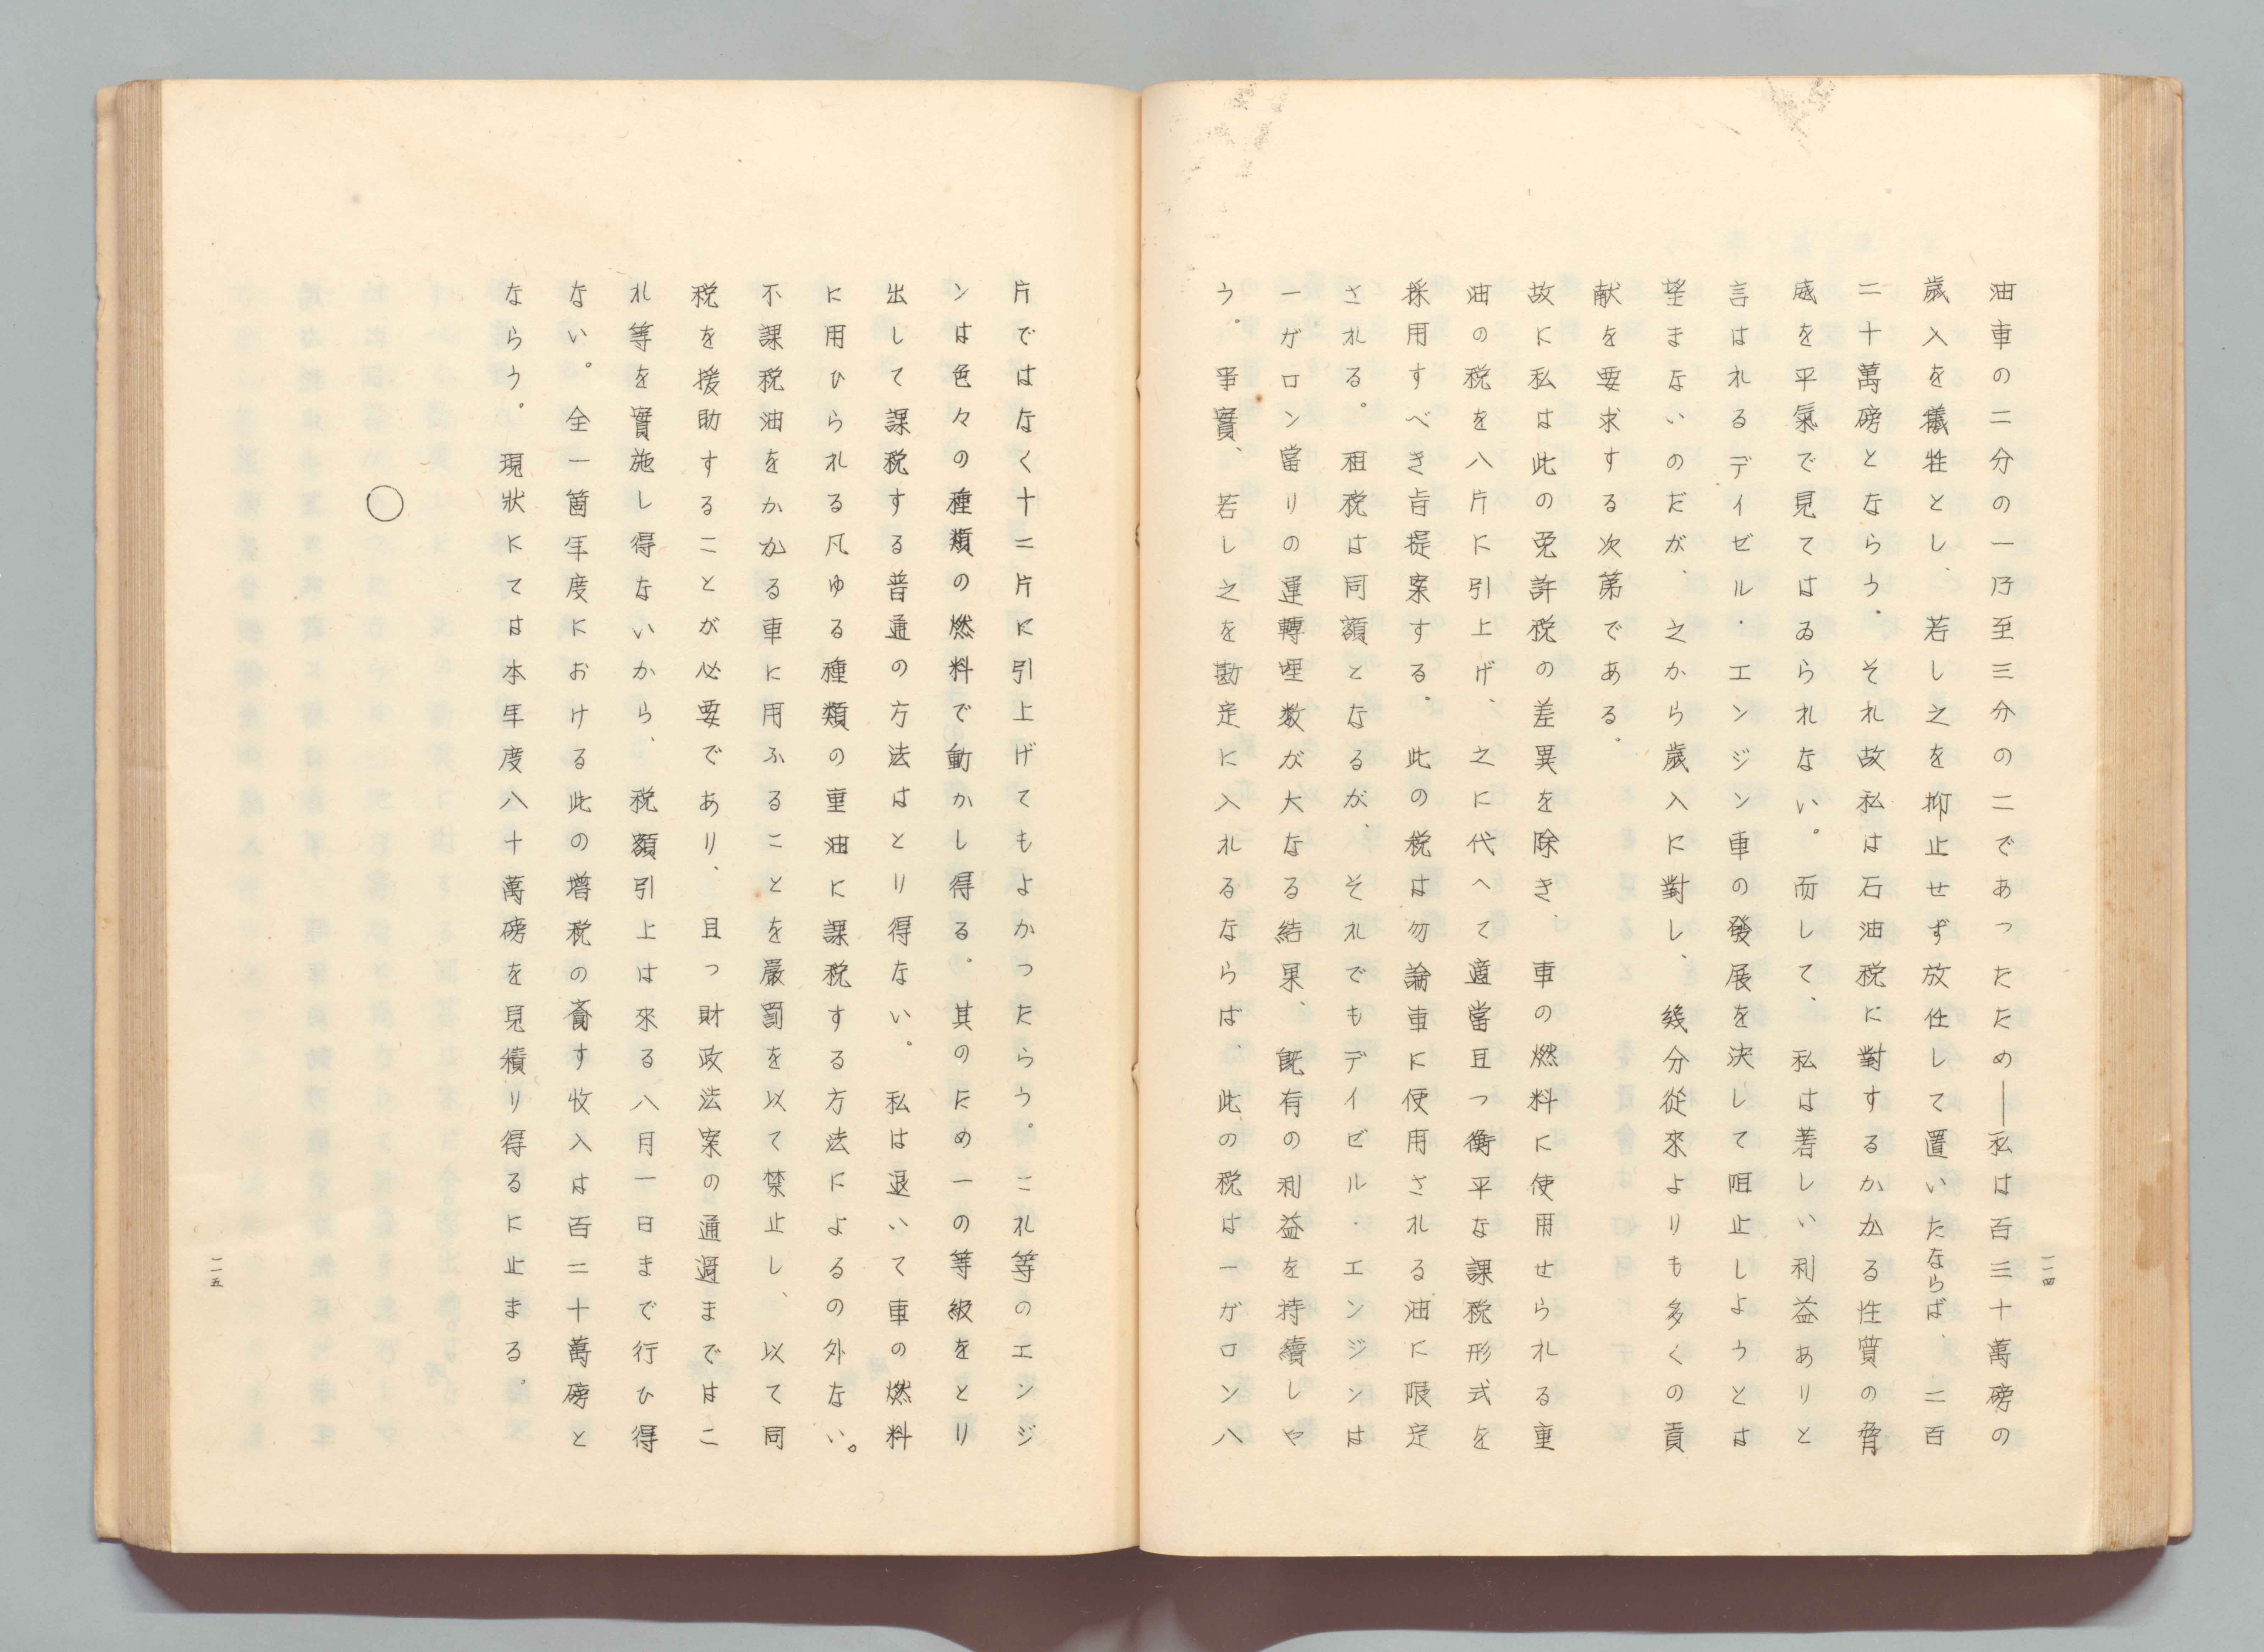 油車の二分の一乃至三分の二であったため――私は百三十萬磅の
歳入を儀牲とし、若し之を抑止せず放任して置いたならば、二百
二十萬磅とならう。それ故私は石油税に對するかかる性質の脅
威を平氣で見てはゐられない。而して、私は著しい利益ありと
言はれるデイゼル・エンジン車の發展を決して咀止しようとは
望まないのだが、之から歳入に對し、幾分從來よりも多くの貢
献を要求する次第である。
故に私は此の免許税の差異を除き、車の燃料に使用せられる重
油の税を八片に引上げ、之に代へて適當且つ衡平な課税形式を
採用すべき旨提案する。此の税は勿論車に使用される油に限定
される。租税は同額となるが、それでもデイゼル・エンジンは
一ガロン當りの運轉哩数が大なる結果、既有の利益を持續しや
う。事實、若し之を勘定に入れるならば、此の税は一ガロン八
一一四
片ではなく十二片に引上げてもよかったらう。これ等のエンジ
ンは色々の種類の燃料で動かし得る。其のため一の等級をとり
出して課税する普通の方法はとり得ない。私は退いて車の燃料
に用ひられる凡ゆる種類の重油に課税する方法によるの外ない。
不課税油をかかる車に用ふることを嚴罰を以て禁止し、以て同
税を援助することが必要であり、且つ財政法案の通過まではこ
れ等を實施し得ないから、税額引上は來る八月一日まで行ひ得
ない。全一箇年度における此の增税の齎す收入は百二十萬磅と
ならう。現狀にては本年度八十萬磅を見積り得るに止まる。
○
一一五